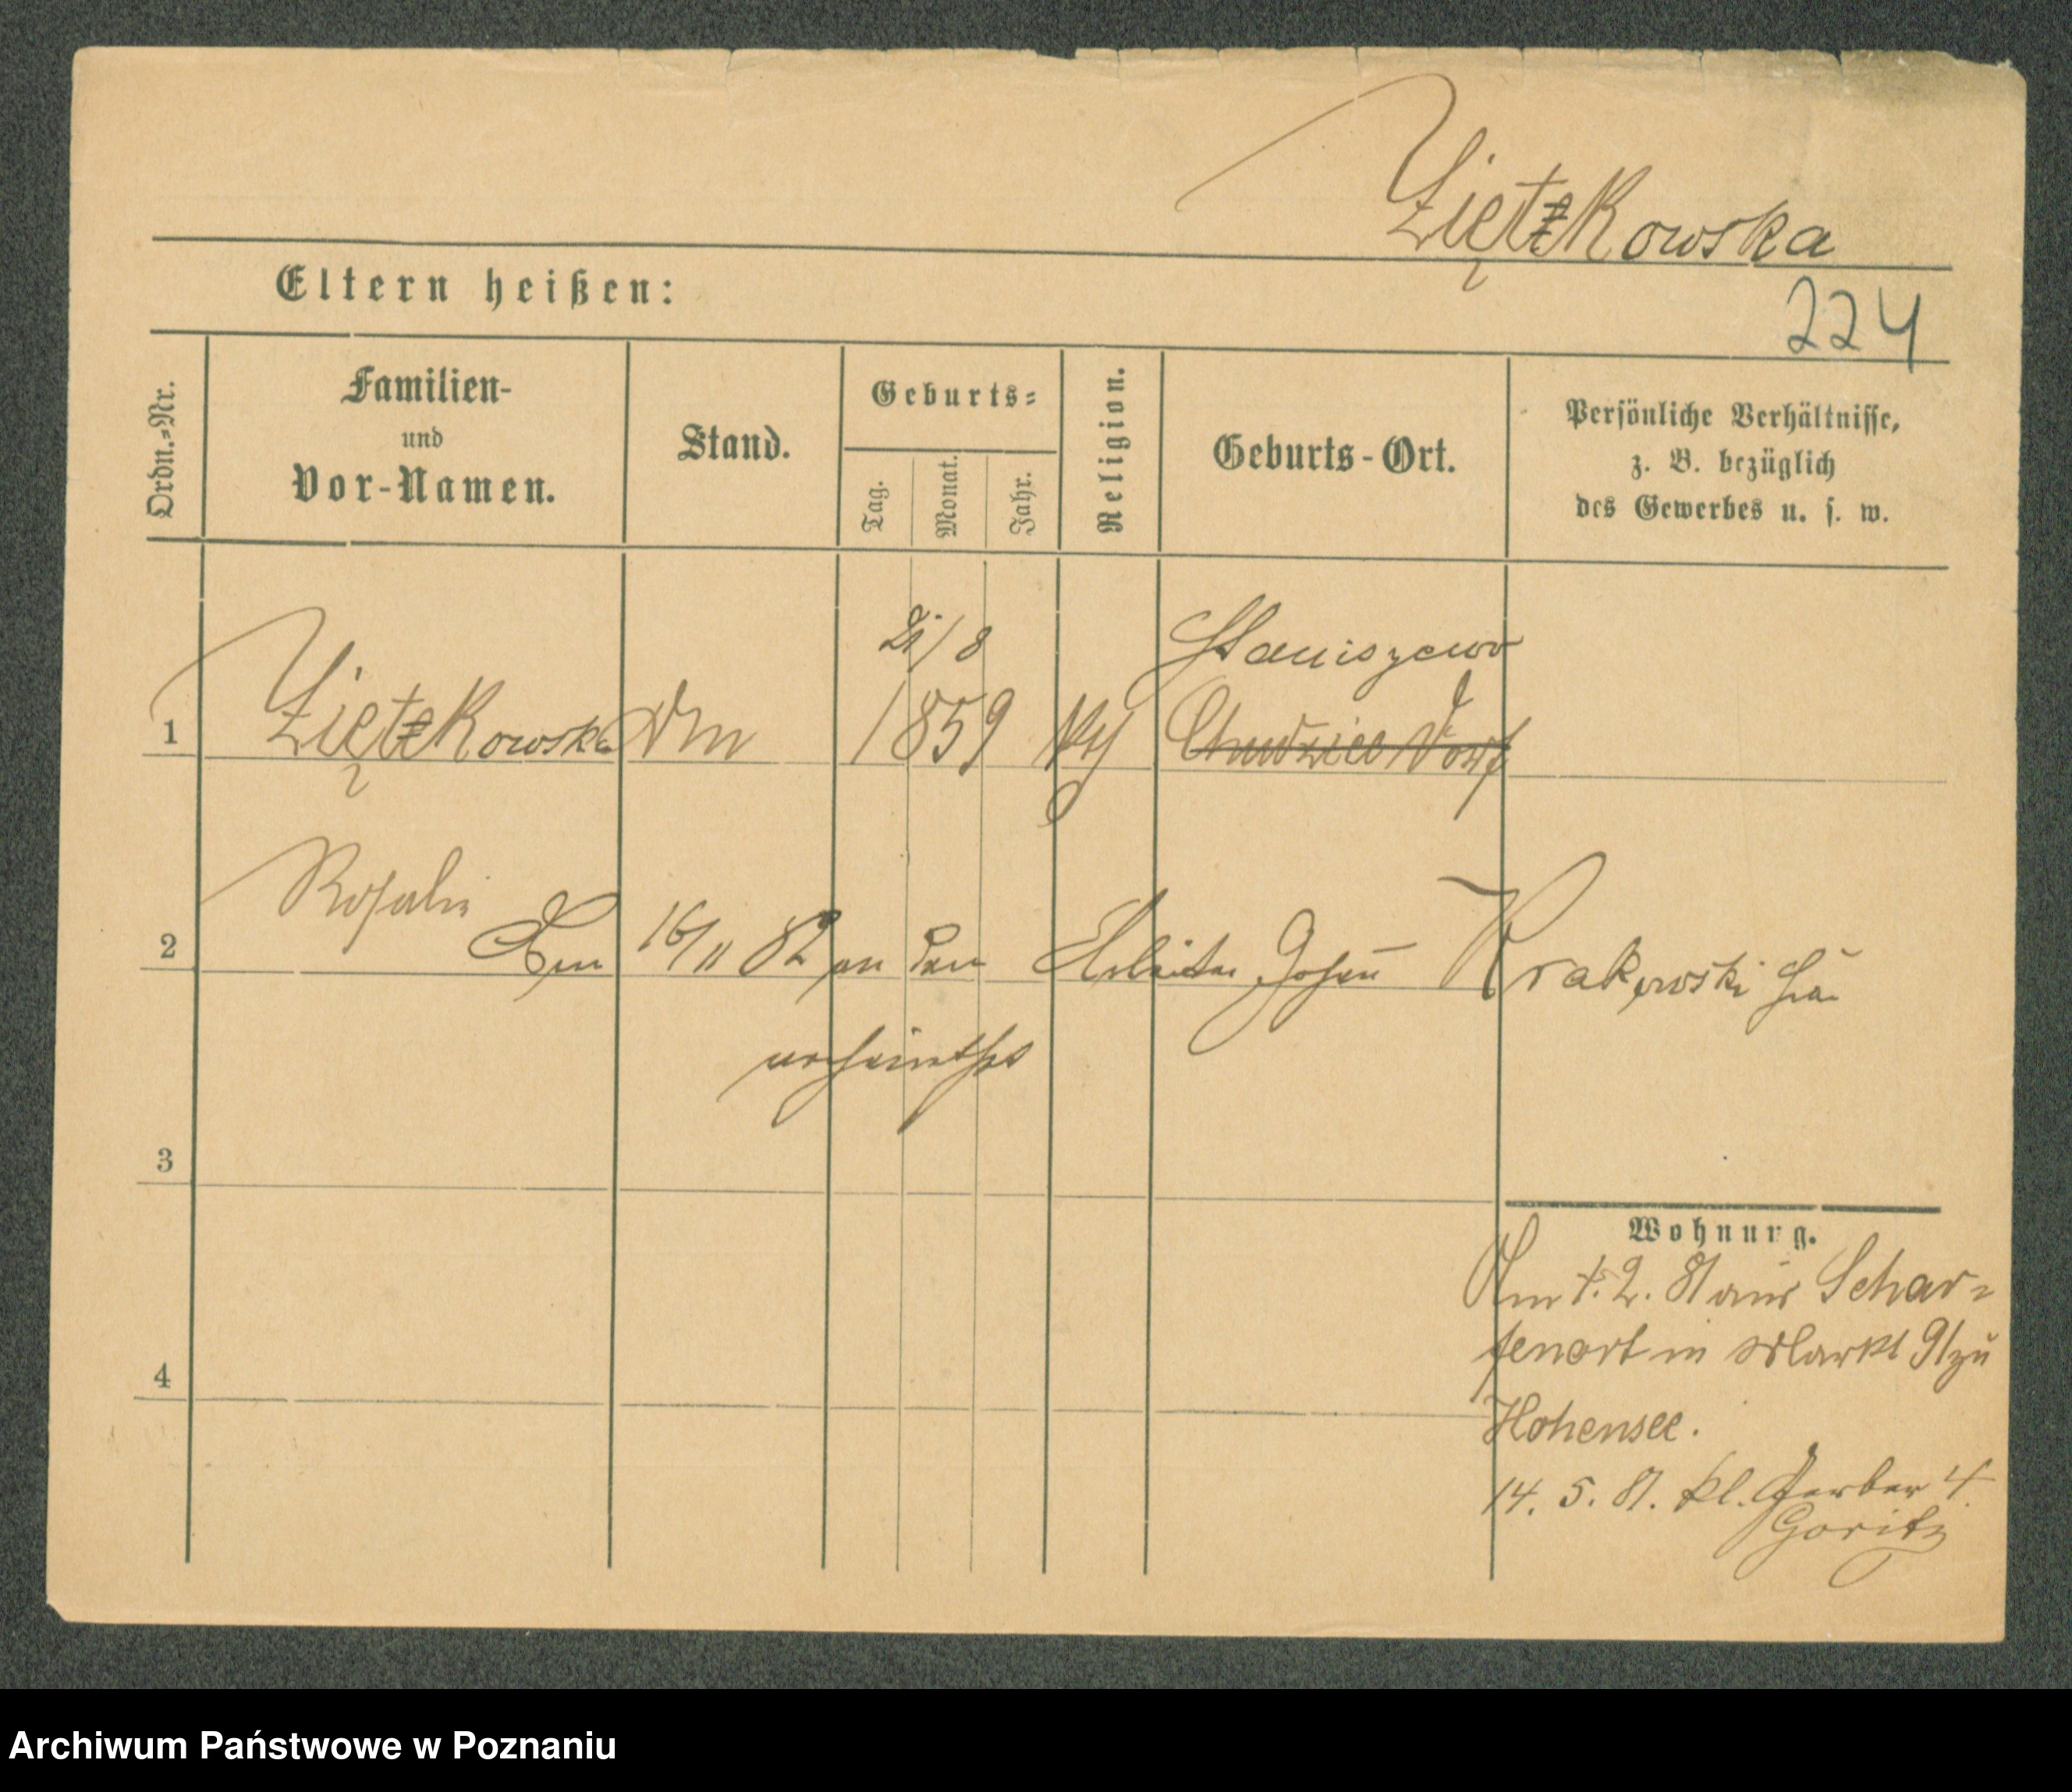 Ziętkowska
224
Eltern heißen:
Ordn.=Nr.
Familien-
und
Vor-Namen.
Stand.
Geburts=
Tag.
Monat.
Jahr.
Religion.
Geburts-Ort.
Persönliche Verhältnisse,
z. B. bezüglich
des Gewerbes u. s. w.
21/8
Staniszewo
1 Ziętkowska 1859
Rosalie
2 16/11 82 an den Arbeiter Johann Krakowski hier
verheirathet
3
Wohnung.
Am 1. 2. 81 aus Schar=
fenort in Markt 91 zu
4
Hohensee.
14. 5. 81. kl. Gerber 4.
Goritz
Archiwum Państwowe w Poznaniu